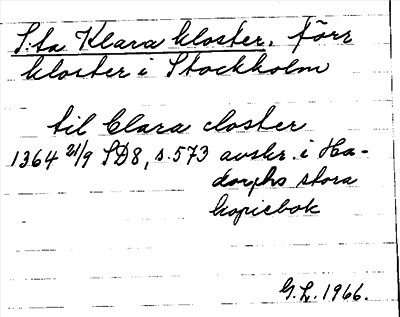 S:ta Klara kloster. förr
kloster i Stockholm
til Clara closter
1364 21/9 SD8, s. 573 avskr. i Ha-
dorphs stora
kopiebok
G. L. 1966.